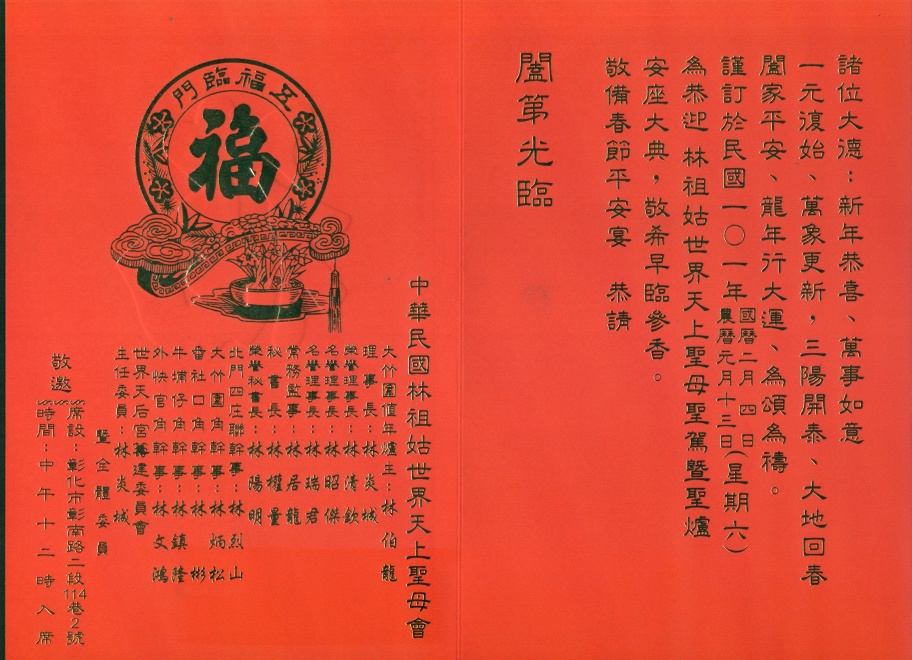 諸位大德：新年恭喜、萬事如意
一元復始、萬象更新，三陽開泰、大地回春
闔家平安、龍年行大運、為頌為禱。
謹訂於民國一〇一年國曆二月四日農曆元月十三日(星期六)
為恭迎 林祖姑世界天上聖母聖駕暨聖爐
安座大典，敬希早臨參香。
敬備春節平安宴 恭請
闔第光臨
五福臨門
福
中華民國林祖姑世界天上聖母會
大竹圍值年爐主：林伯龍
理事長：林炎城
榮譽理事長：林清欽
名譽理事長：林昭傑
名譽理事長：林瑞君
常務監事：林居龍
秘書長：林權量
榮譽秘書長：林陽明
北門四庄聯幹事：林烈山
大竹圍角幹事：林炳松
番社口角幹事：林彬
牛埔仔角幹事：林鎮隆
外快官角幹事：林文鴻
世界天后宮籌建委員會
主任委員：林炎城
暨全體委員
敬邀
席設：彰化市彰南路二段114巷2號
時間：中午十二時入席